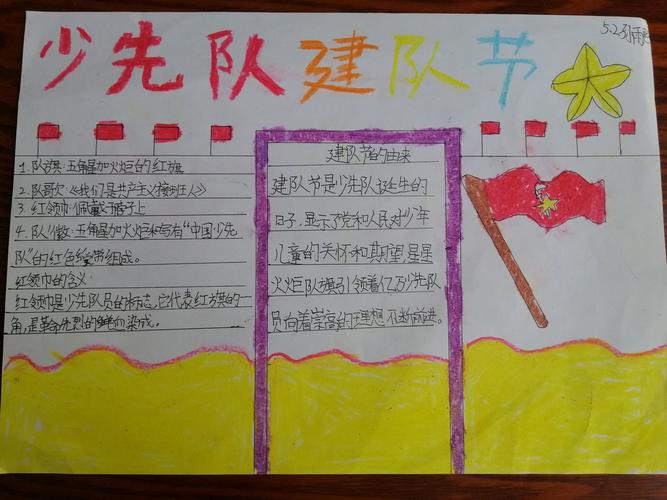 少先队建队节
5.2
1.队旗:五角星加火炬的红旗
2.队歌:《我们是共产主义接班人》
3.红领巾:佩戴于脖子上
4.队徽:五角星加火炬和写有“中国少先
队”的红色绶带组成。
红领巾的含义
红领巾是少先队员的标志,它代表红旗的一
角,是革命先烈的鲜血染成。
建队节的由来
建队节是少先队诞生的
日子,显示了党和人民对少年
儿童的关怀和期望,星星
火炬队旗引领着亿万少先队
员向着崇高的理想不断前进。